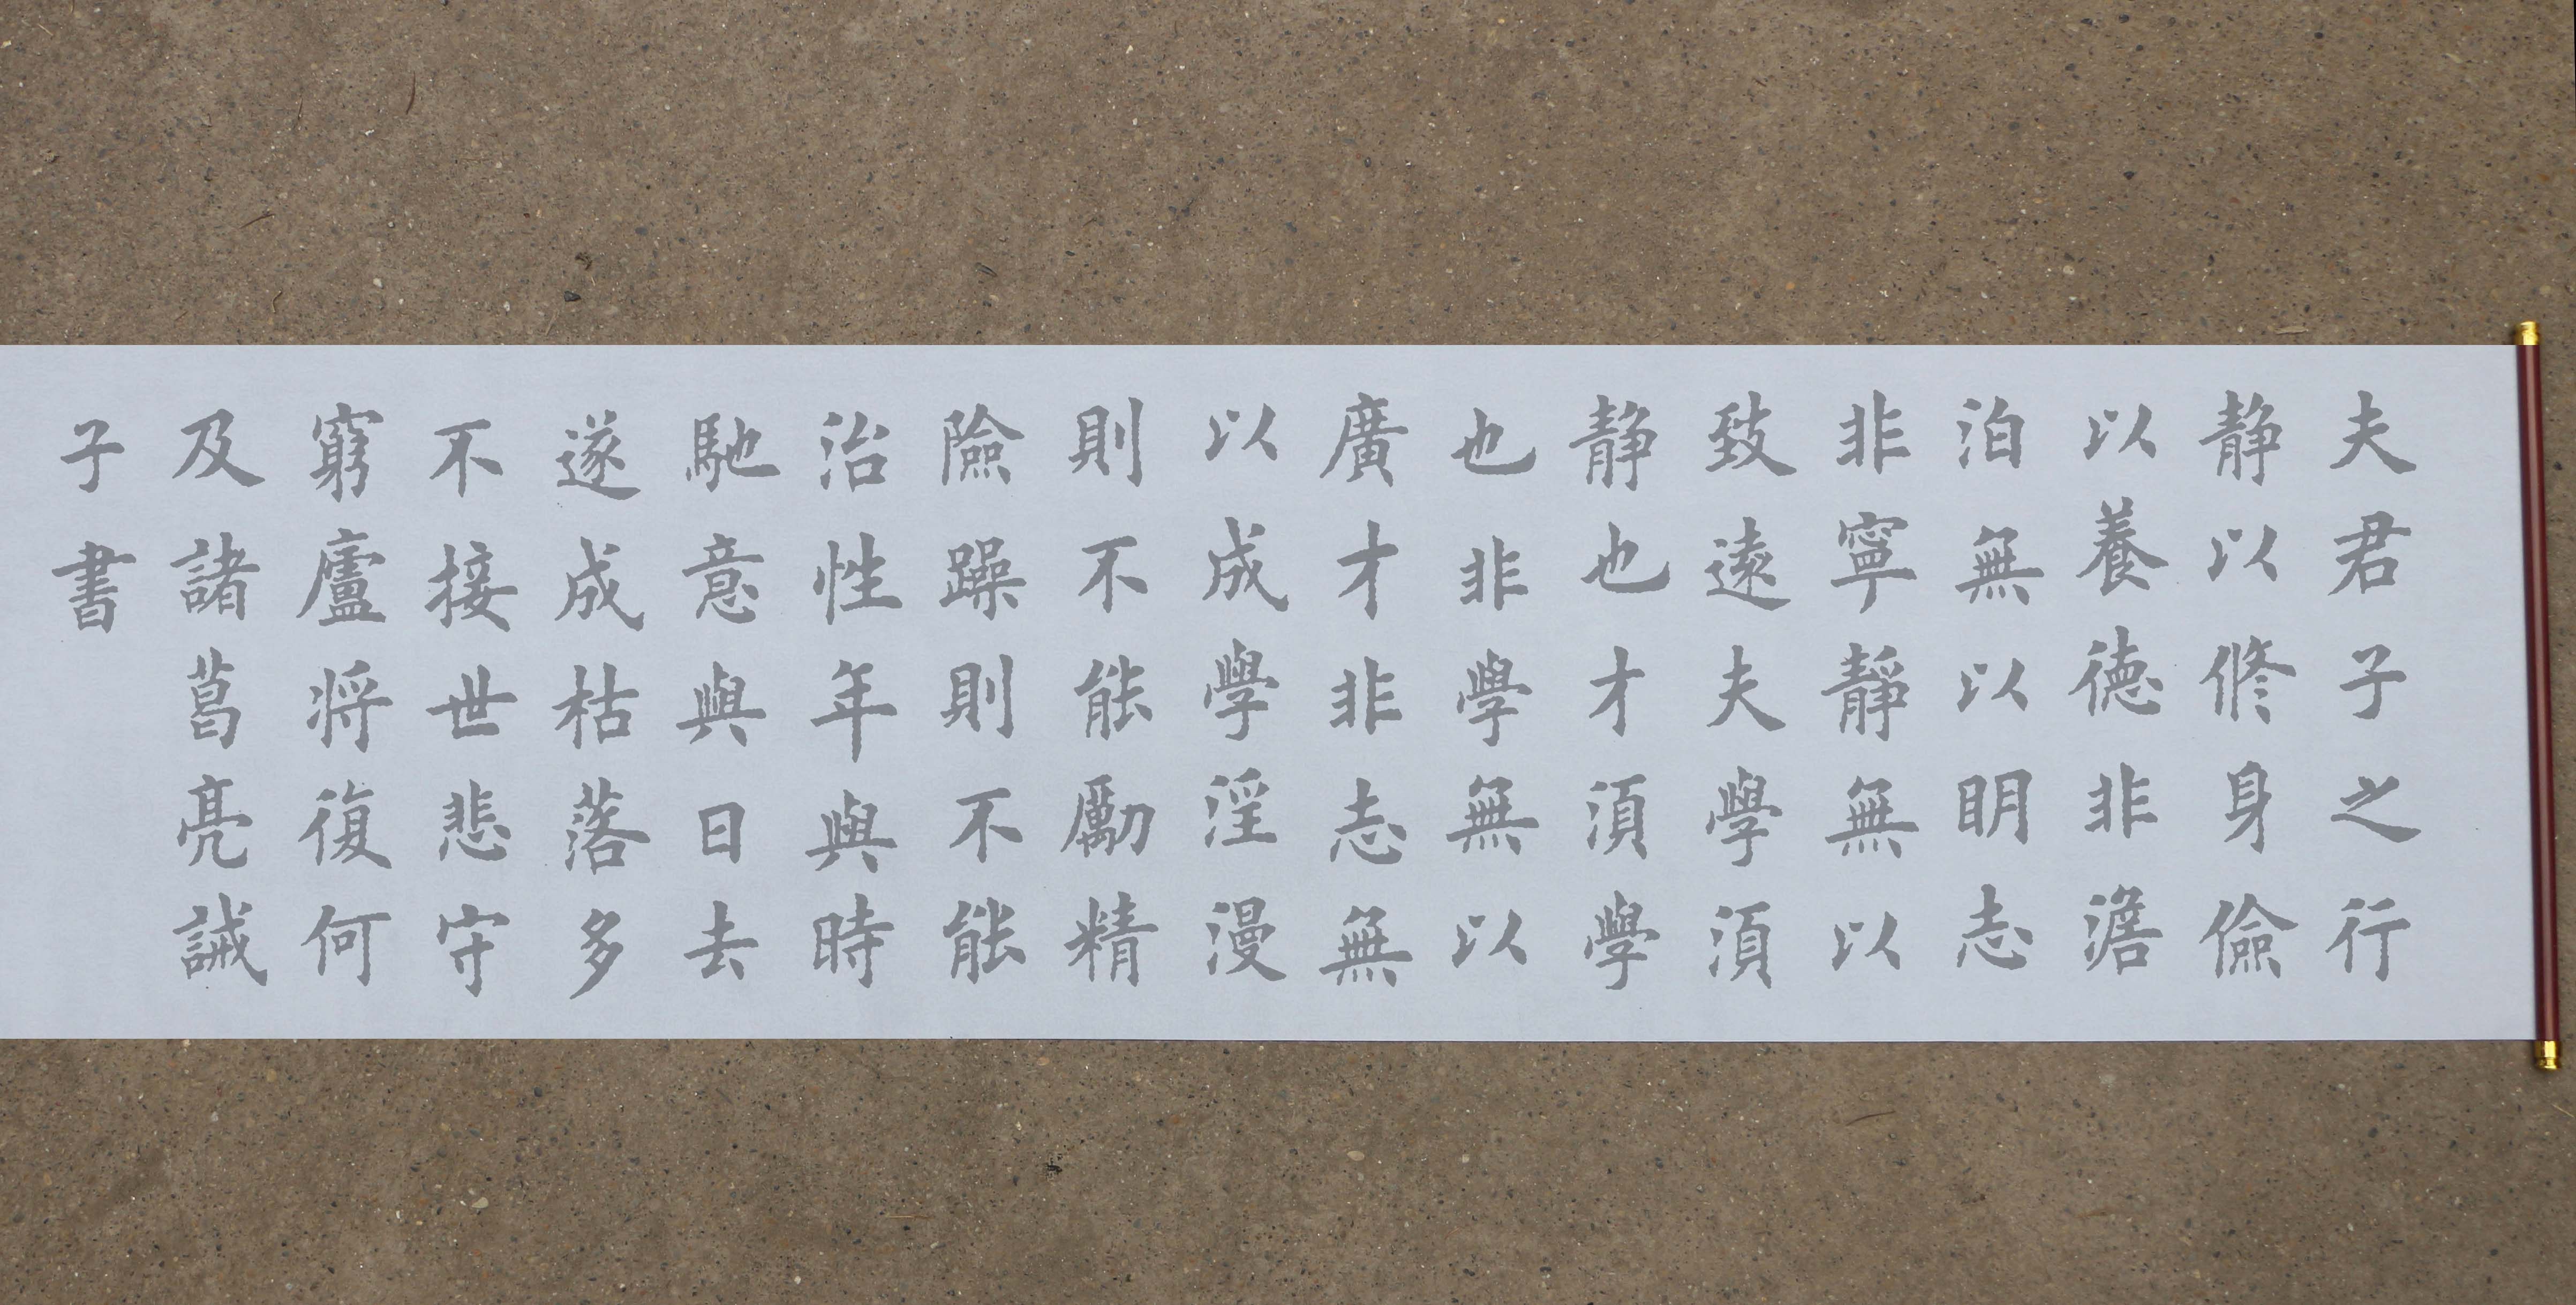 夫君子之行
静以修身儉
以養德非澹
泊無以明志
非寧靜無以
致遠夫學須
静也才須學
也非學無以
廣才非志無
以成學淫漫
則不能勵精
險躁則不能
治性年與時
馳意與日去
遂成枯落多
不接世悲守
窮廬将復何
及諸葛亮誡
子書